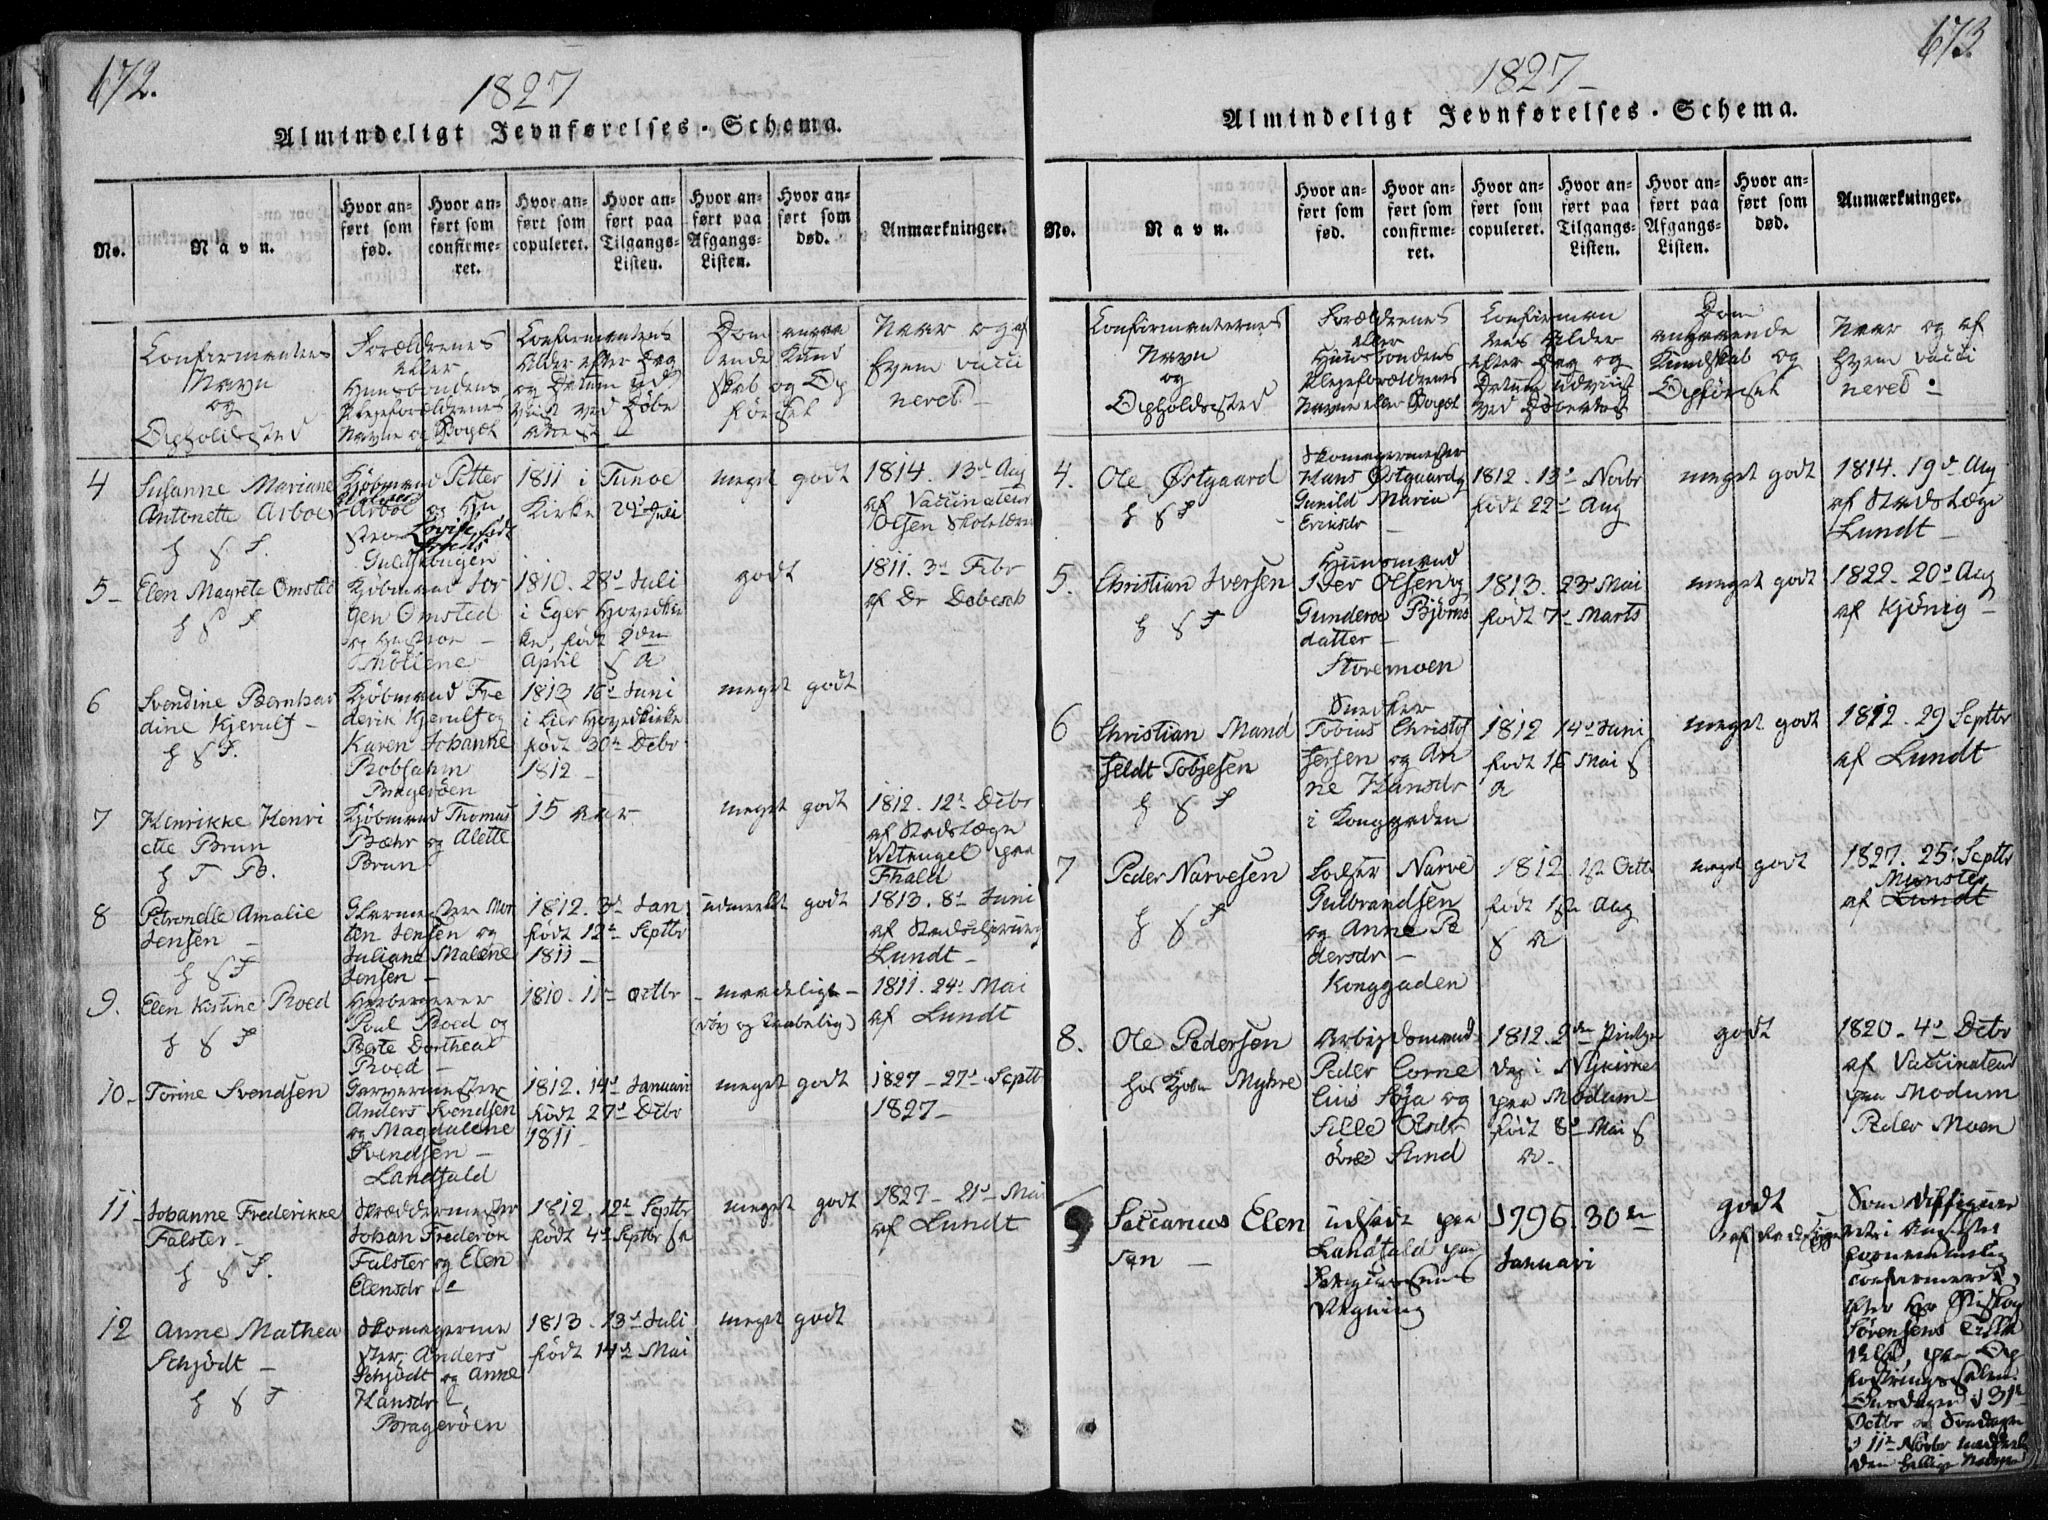 672.
1827
Almindeligt Jevnførelses-Schema.
No.
Navn.
Hvor anført som fød.
Hvor anført som confirmeret.
Hvor anført som copuleret.
Hvor anført paa Tilgangs-Listen.
Hvor anført paa Afgangs-Listen.
Hvor anført som død.
Anmærkninger.
Confirmantens
Navn
og
Opholdssted
Forældrenes
eller
Huusbondens
Plejeforældrenes
Navne og Bopæl
Confirmantens
Alder efter Dag
og Datum ud
viist ved Døbe
attest
Dom anga
ende Kund
skab og Op
førsel
Naar og af
hvem vacci
neret
4
Susanne Mariane
Antonette Arboe
h S F.
Kjøbmand Petter
Arboe og Hu
stroe Lovise født
Guldskougen
1811 i Tunøe
Kirke 29de Juli
meget godt
1814. 13de Aug
af Vaccinateur
Olsen Skolelærer
5
Elen Magrete Omsted
h S F
Kjøbmand Jør
gen Omsted
og Hustroe
Møllene
1810. 28de Juli
i Eger Hovedkir
ke, født 2den
April S A
godt
1811. 3de Febr
af Dr Dobesch
6
Svendine Bernhar
dine Kjerulf
h S F.
Kjøbmand Fre
derik Kjerulf og
Karen Johanne
Robsahm
Bragerøen
1813 16de Juni
i Lier Hovedkirke
født 30te Debr
1812
meget godt
7
Henrikke Henri
ette Brun
h T B.
Kjøbmand Thomas
Bæhr og Alette
Brun
15 Aar
meget godt
1812. 12te Debr
af Stadslæge
Wetnugel paa
Fhald
8
Petronelle Amalie
Jensen
h S F
Glarmester Mor
ten Jensen og
Juliane Malene
Jensen
1812. 3de Jan
født 12te Septbr
1811
udmerket godt
1813. 8de Juni
af Stadschirurg
Lundt
9.
Elen Kistine Roed
h S F
Herbergerer
Poul Roed og
Berte Dorthea
Roed
1810. 11te Octbr
maadeligt
(døv og taabelig)
1811. 24de Mai
af Lundt
10
Torine Svendsen
Garvermester
Anders Svendsen
og Magdalene
Svendsen
Landfald
1812. 14de Januari
født 27de Debr
1811
meget godt
1827 27de Septbr
1827
11
Johanne Frederikke
Falster
h S F.
Skræddermester
Johan Frederik
Falster og Elen
Elensdr
1812. 12te Septbr
født 4de Septbr SA
meget godt
1827 21de Mai
af Lundt
12
Anne Mathea
Schjødt
h S F
Skomagerme
ster Anders
Schjødt og Anne
Hansdr
Bragerøen
1813. 13de Juli
født 14de Mai
meget godt
673.
1827
Almindeligt Jevnførelses-Schema.
No.
Navn.
Hvor anført som fød.
Hvor anført som confirmeret.
Hvor anført som copuleret.
Hvor anført paa Tilgangs-Listen.
Hvor anført paa Afgangs-Listen.
Hvor anført som død.
Anmærkninger.
Confirmanternes
Navn
og
Opholdssted
Forældrenes
eller
Huusbondens
Plejeforældrenes
Navne eller Bopæl
Confirman
tens Alder
efter Dag og
Datum udviist
ved Døbeattest
Dom
angaaende
Kundskab og
Opførsel
Naar og af
hvem vacci
neret
4.
Ole Østgaard
h S F
Skomagermester
Hans Østgaard og
Gunild Maria
Eriksdr
1812. 13de Novbr
født 22de Aug
meget godt
1814. 19de Aug
af Stadslæge
Lundt
5.
Christian Iversen
h S F
Huusmand
Iver Olsen og
Gunderoe Bjørns
datter
Storemoen
1813. 23de Mai
født 7de Marts
meget godt
1822. 20de Aug
af Kjønig
6
Christian Mand
feldt Tobjesen
h S F
Snedker
Tobias Christof
fersen og An
ne Hansdr
i Konggaden
1812 14de Juni
født 16 Mai S
A
meget godt
1812. 29 Septbr
af Lundt
7
Peder Narvesen
h S F
Lodser Narve
Gulbrandsen
og Anne Pe
dersdr
Konggaden
1812. 1ste Octbr
født 1ste Aug
S A
meget godt
1827. 25de Septbr
Munster
af Lundt
8.
Ole Pedersen
hos Kjøbm Myhre
Arbejdsmand
Peder Corne
lius Føja og
Sille Olsdr
øvre Sund
1812. 2den Pintse
dag i Nykirke
paa Modum
født 8de Mai S
A
godt
1820. 4de Debr
af Vaccinateur
paa Modum
Peder Moen
9
Saccarius Elen
sen
udsadt paa
Landfald paa
Fattigcassens
Regning
1796. 30te
Januari
godt
Som
confirmeret,
efter Hr Biskop
Sørensens Tilla
delse paa Op
fostringssalen
Onsdagen d 31te
Octbr og Søndagen
d 11te Novbr meddeelt
den hellige Nadvere